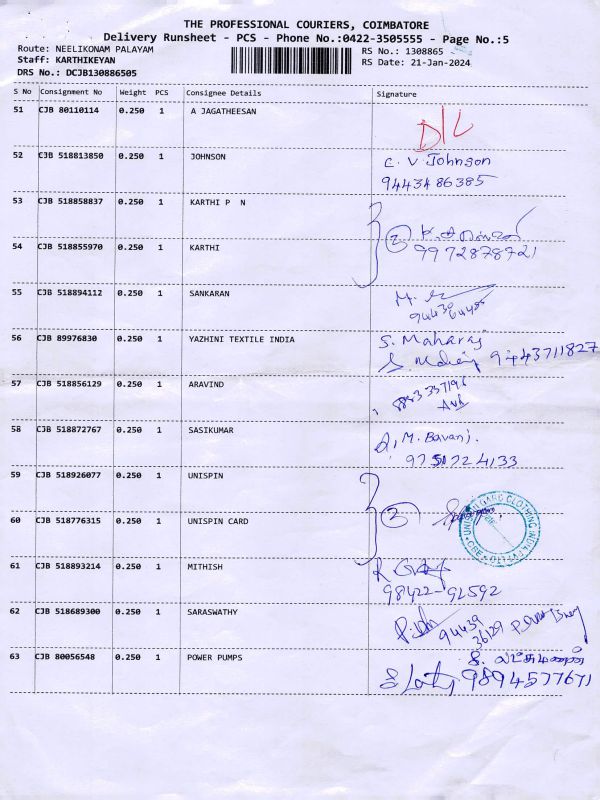 THE PROFESSIONAL COURIERS, COIMBATORE
Delivery Runsheet - PCS - Phone No.:0422-3505555 - Page No.:5
Route: NEELIKONAM PALAYAM
RS No.: 1308865
Staff: KARTHIKEYAN
RS Date: 21-Jan-2024
DRS No.: DCJB130886505
S No Consignment No Weight PCS Consignee Details Signature
51 CJB 80110114 0.250 1 A JAGATHEESAN D/L
52 CJB 518813850 0.250 1 JOHNSON C. V Johnson
9443486385
53 CJB 518858837 0.250 1 KARTHI P N
2
54 CJB 518855970 0.250 1 KARTHI 9972878721
55 CJB 518894112 0.250 1 SANKARAN
56 CJB 89976830 0.250 1 YAZHINI TEXTILE INDIA S. Maharaj
9443711827
57 CJB 518856129 0.250 1 ARAVIND
58 CJB 518872767 0.250 1 SASIKUMAR M. Bavani.
9751724133
59 CJB 518926077 0.250 1 UNISPIN
2
60 CJB 518776315 0.250 1 UNISPIN CARD
61 CJB 518893214 0.250 1 MITHISH
98422-92592
62 CJB 518689300 0.250 1 SARASWATHY 94439
36129
63 CJB 80056548 0.250 1 POWER PUMPS S. லட்சுமணன்
9894577671